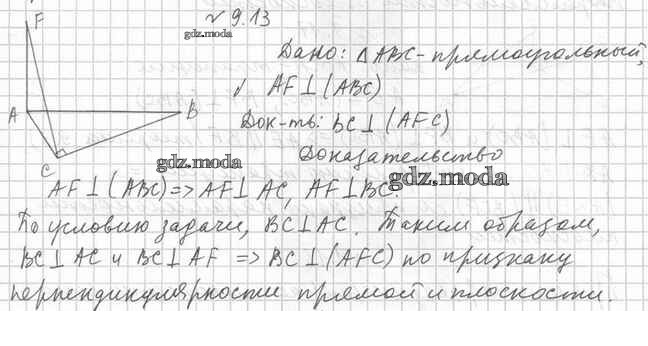 F
№ 9.13
gdz.moda
Дано: △ABC - прямоугольный,
AF⊥(ABC)
A
B
Док-ть: BC⊥(AFC)
C
gdz.moda
Доказательство
AF⊥(ABC)=> AF⊥AC, AF⊥BC.
gdz.moda
По условию задачи, BC⊥AC. Таким образом,
BC⊥AC и BC⊥AF => BC⊥(AFC) по признаку
перпендикулярности прямой и плоскости.